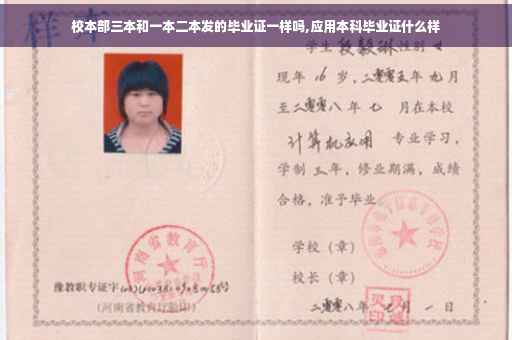 校本部三本和一本二本发的毕业证一样吗,应用本科毕业证什么样
样本
学生段毅琳性别女
现年16岁,二零零五年九月
至二零零八年七月在本校
计算机应用 专业学习,
学制三年,修业期满,成绩
合格,准予毕业
学校(章)
校长(章)
二零零八年七月一日
河南省教育厅
豫教职专证字
(河南省教育厅验印)